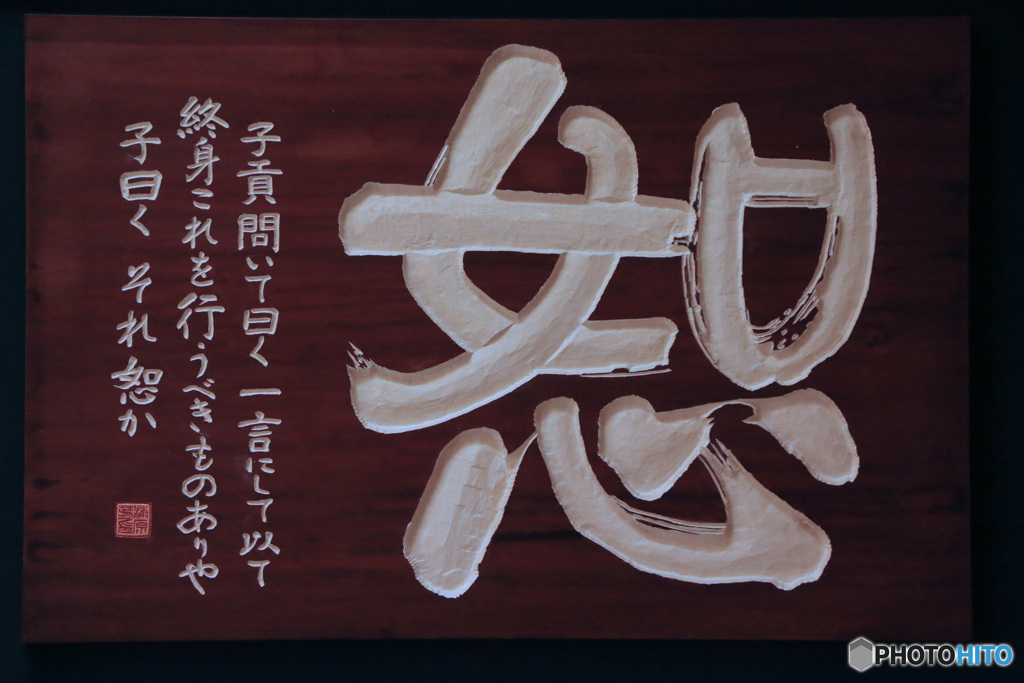 恕
子貢問いて曰く 一言にして以て
終身これを行うべきものありや
子曰く それ恕か
PHOTOHITO